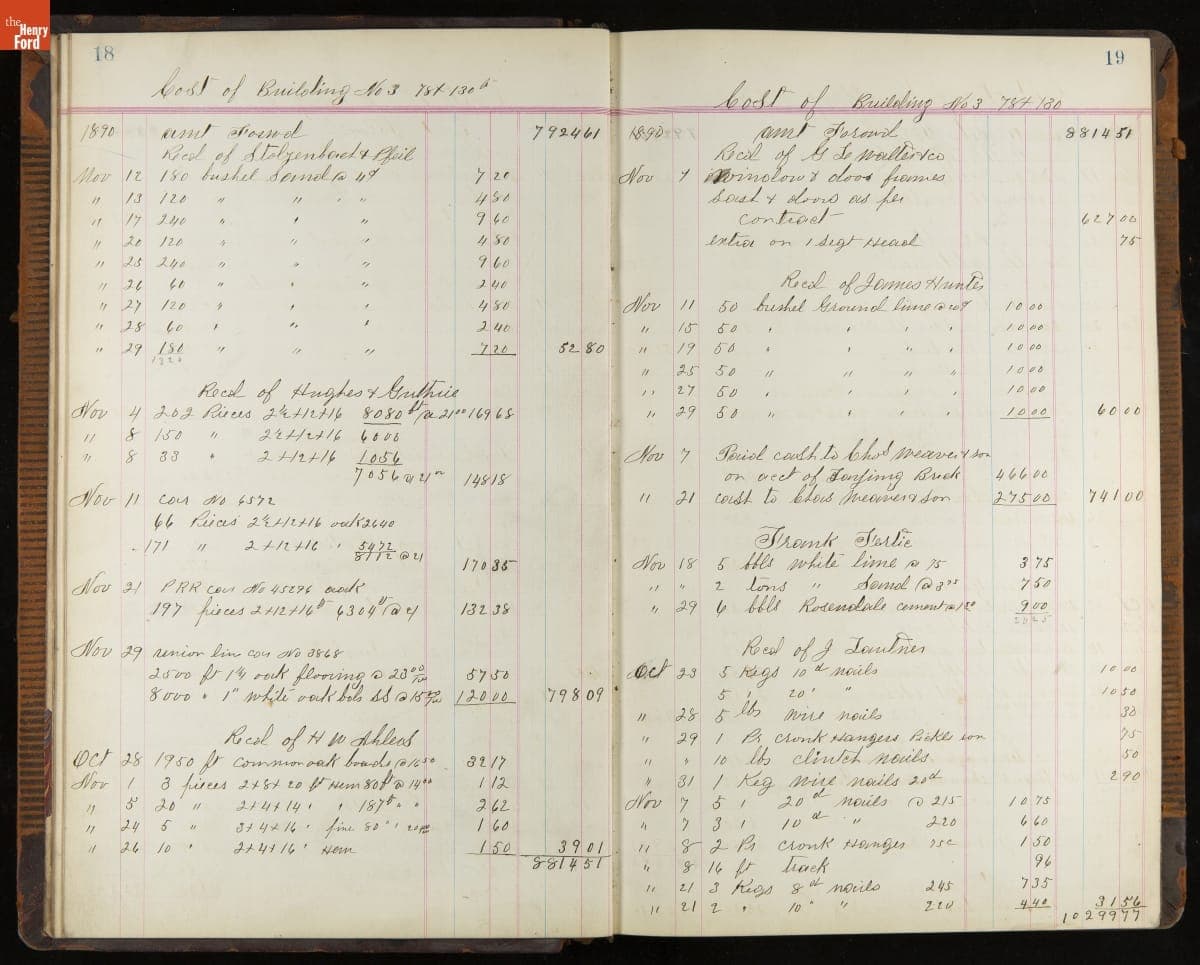 the Henry Ford
18
Cost of Building No 3 78+130 ft
1890 amt Forwd 792461
Recd of Stolzenbach & Pfeil
Nov 12 180 bushel Sand @ 4¢ 7 20
" 13 120 " " " " 4 80
" 17 240 " " " 9 60
" 20 120 " " " 4 80
" 25 240 " " " 9 60
" 26 60 " " " 2 40
" 27 120 " " " 4 80
" 28 60 " " " 2 40
" 29 180 " " " 7 20 52 80
1320
Recd of Hughes & Guthrie
Nov 4 202 Pieces 2½+12+16 8080 ft @ 21 00 169 68
" 8 150 " 2½+12+16 6000
" 8 33 " 2+12+16 1056
7056 @ 21 00 148 18
Nov 11 car No 6572
66 Pieces 2½+12+16 oak 2640
171 " 2+12+16 " 5472
8112 @ 21 170 35
Nov 21 PRR car No 45296 oak
197 pieces 2+12+16 ft 6304 ft @ 21 132 38
Nov 29 senior lin car No 3868
2500 ft 1¼ oak flooring @ 23 00 57 50
8000 " 1" white oak bds SS @ 15 00 120 00 798 09
Recd of H W Ahlers
Oct 28 1950 ft common oak boards @ 16 50 32 17
Nov 1 3 pieces 2+8+20 ft Hem 80 ft @ 14 00 1 12
" 5 20 " 2+4+14 " " 187 ft " " 2 62
" 24 5 " 3+4+16 " pine 80 " " 20 00 1 60
" 26 10 " 2+4+16 " Hem 1 50 39 01
8814 51
19
Cost of Building No 3 78+130
1890 amt Forowd 8814 51
Recd of G Le Walter & co
Nov 7 Window & door frames
Sash & doors as per
contract 627 00
extra on 1 Segt Head 75
Recd of James Hunter
Nov 11 50 bushel Ground lime @ 20¢ 10 00
" 15 50 " " " " 10 00
" 19 50 " " " " 10 00
" 25 50 " " " " 10 00
" 27 50 " " " " 10 00
" 29 50 " " " " 10 00 60 00
Nov 7 Paid cash to Chas Weaver & son
on acct of Brick 466 00
" 21 cash to Chas Weaver & son 275 00 741 00
Frank
Nov 18 5 bbls white lime @ 75 3 75
" " 2 tons " Sand @ 3 75 7 50
" 29 6 bbls Rosendale cement @ 1 50 9 00
20 25
Recd of J Lautner
Oct 23 5 Kegs 10 d nails 10 00
5 " 20 " " 10 50
" 28 5 lbs wire nails 30
" 29 1 Pr cronk Hangers 75
" " 10 lbs clintch nails 50
" 31 1 Keg wire nails 20d 2 90
Nov 7 5 " 20 d nails @ 215 10 75
" 7 3 " 10 d " 220 6 60
" 8 2 Prs cronk Hanges 75c 1 50
" 8 16 ft track 96
" 21 3 Kegs 8 d nails 245 7 35
" 21 2 " 10 " " 220 4 40 31 56
10299 77